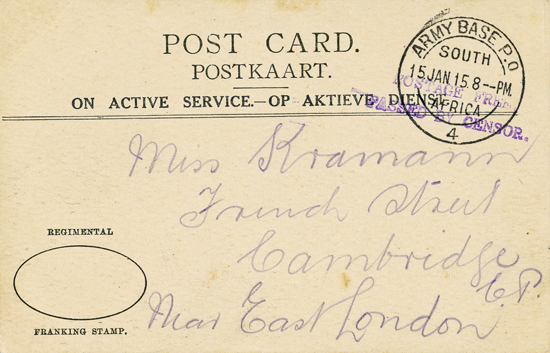 POST CARD.
POSTKAART.
ON ACTIVE SERVICE.—OP AKTIEVE DIENST.
ARMY BASE P.O.
SOUTH
15 JAN 15 8--PM.
AFRICA
4
POSTAGE FREE
PASSED BY CENSOR.
Miss Kramann
French Street
Cambridge
C.P.
Near East London
REGIMENTAL
FRANKING STAMP.